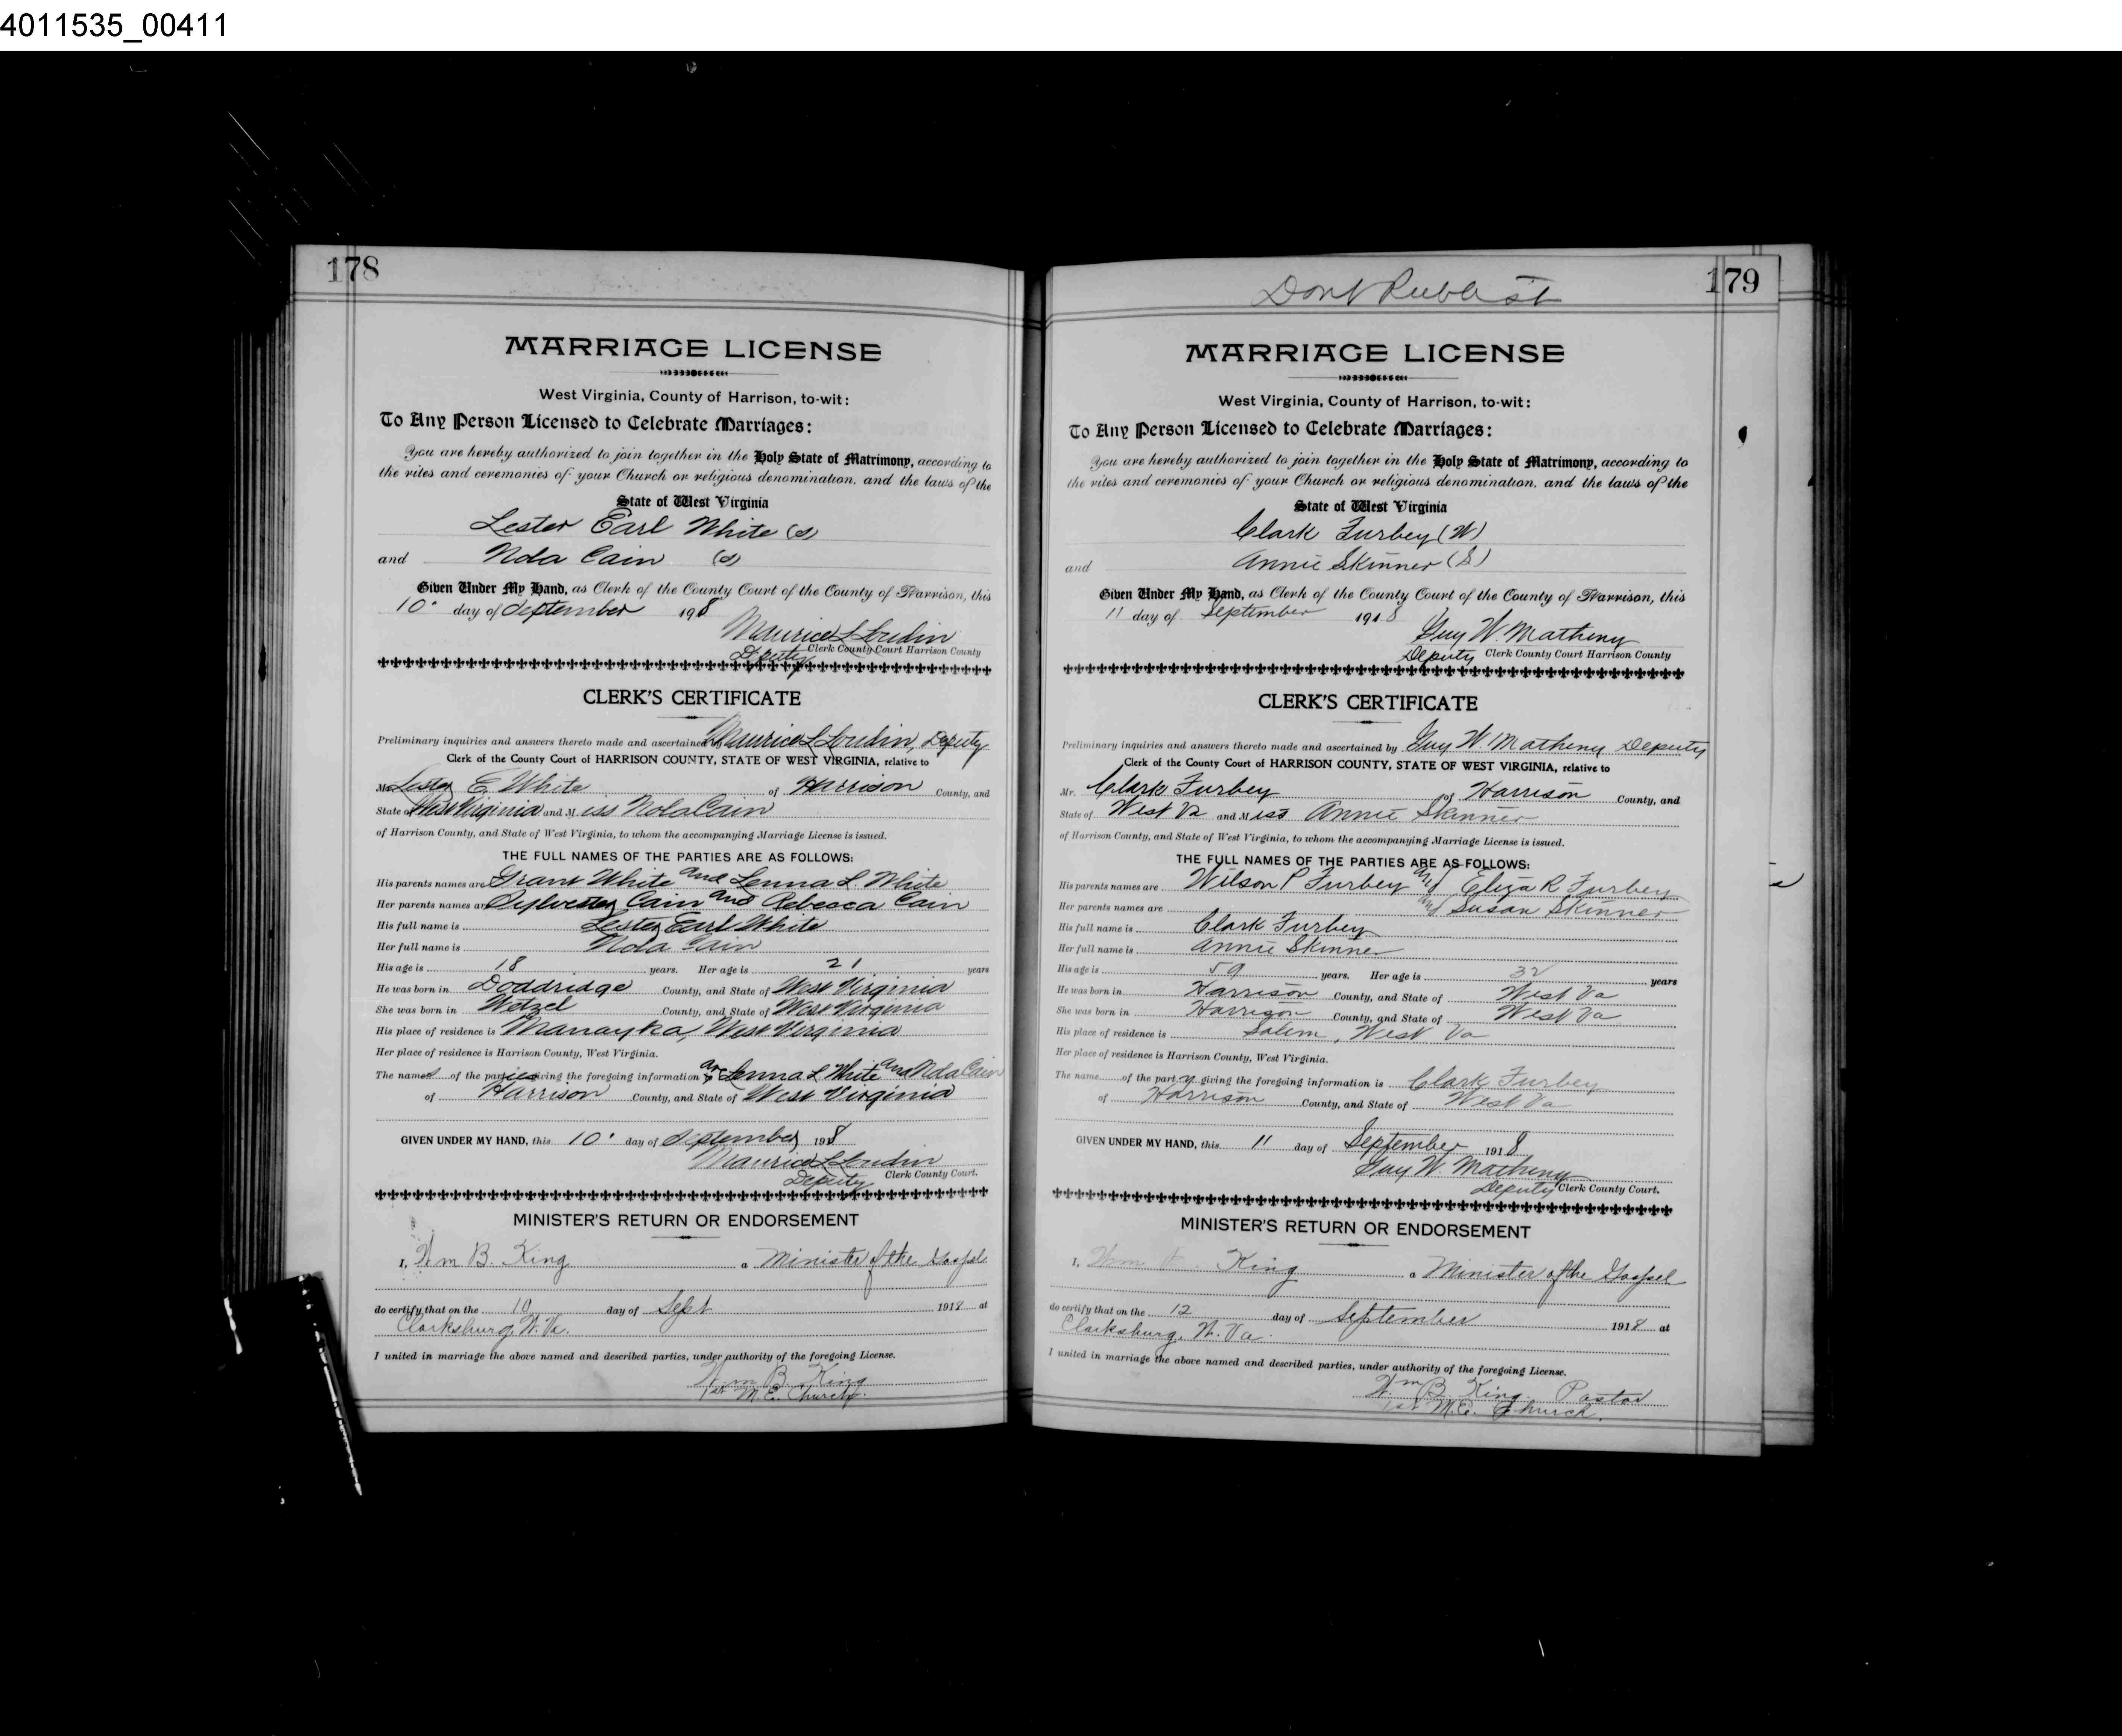 4011535_00411
178
MARRIAGE LICENSE
West Virginia, County of Harrison, to-wit:
To Any Person Licensed to Celebrate Marriages:
You are hereby authorized to join together in the Holy State of Matrimony, according to
the rites and ceremonies of your Church or religious denomination, and the laws of the
State of West Virginia
Lester Earl White (s)
and Nola Cain (s)
Given Under My Hand, as Clerk of the County Court of the County of Harrison, this
10" day of September 1918
Maurice L Loudin
Deputy Clerk County Court Harrison County
CLERK'S CERTIFICATE
Preliminary inquiries and answers thereto made and ascertained by Maurice L Loudin, Deputy
Clerk of the County Court of HARRISON COUNTY, STATE OF WEST VIRGINIA, relative to
Mr. Lester E. White of Harrison County, and
State of West Virginia and Miss Nola Cain
of Harrison County, and State of West Virginia, to whom the accompanying Marriage License is issued.
THE FULL NAMES OF THE PARTIES ARE AS FOLLOWS:
His parents names are Grant White and Lenna L. White
Her parents names are Sylvester Cain and Rebecca Cain
His full name is Lester Earl White
Her full name is Nola Cain
His age is 18 years. Her age is 21 years
He was born in Doddridge County, and State of West Virginia
She was born in Wetzel County, and State of West Virginia
His place of residence is Manayka, West Virginia
Her place of residence is Harrison County, West Virginia.
The names of the parties giving the foregoing information are Lenna L White and Nola Cain
of Harrison County, and State of West Virginia
GIVEN UNDER MY HAND, this 10" day of September 1918
Maurice L Loudin
Deputy Clerk County Court.
MINISTER'S RETURN OR ENDORSEMENT
I, Wm B. King a Minister of the Gospel
do certify that on the 10 day of Sept 1918 at
Clarksburg, W. Va.
I united in marriage the above named and described parties, under authority of the foregoing License.
Wm B. King
1st M.E. Church.
Dont Publish
179
MARRIAGE LICENSE
West Virginia, County of Harrison, to-wit:
To Any Person Licensed to Celebrate Marriages:
You are hereby authorized to join together in the Holy State of Matrimony, according to
the rites and ceremonies of your Church or religious denomination, and the laws of the
State of West Virginia
Clark Furbey (W)
and Annie Skinner (S)
Given Under My Hand, as Clerk of the County Court of the County of Harrison, this
11 day of September 1918
Guy W. Matheny
Deputy Clerk County Court Harrison County
CLERK'S CERTIFICATE
Preliminary inquiries and answers thereto made and ascertained by Guy W. Matheny Deputy
Clerk of the County Court of HARRISON COUNTY, STATE OF WEST VIRGINIA, relative to
Mr. Clark Furbey of Harrison County, and
State of West Va and Miss Annie Skinner
of Harrison County, and State of West Virginia, to whom the accompanying Marriage License is issued.
THE FULL NAMES OF THE PARTIES ARE AS FOLLOWS:
His parents names are Wilson P Furbey and Eliza R Furbey
Her parents names are and Susan Skinner
His full name is Clark Furbey
Her full name is Annie Skinner
His age is 59 years. Her age is 32 years
He was born in Harrison County, and State of West Va
She was born in Harrison County, and State of West Va
His place of residence is Salem, West Va
Her place of residence is Harrison County, West Virginia.
The name of the party giving the foregoing information is Clark Furbey
of Harrison County, and State of West Va
GIVEN UNDER MY HAND, this 11 day of September 1918
Guy W. Matheny
Deputy Clerk County Court.
MINISTER'S RETURN OR ENDORSEMENT
I, Wm King a Minister of the Gospel
do certify that on the 12 day of September 1918 at
Clarksburg, W. Va.
I united in marriage the above named and described parties, under authority of the foregoing License.
Wm B. King Pastor
1st M.E. Church.